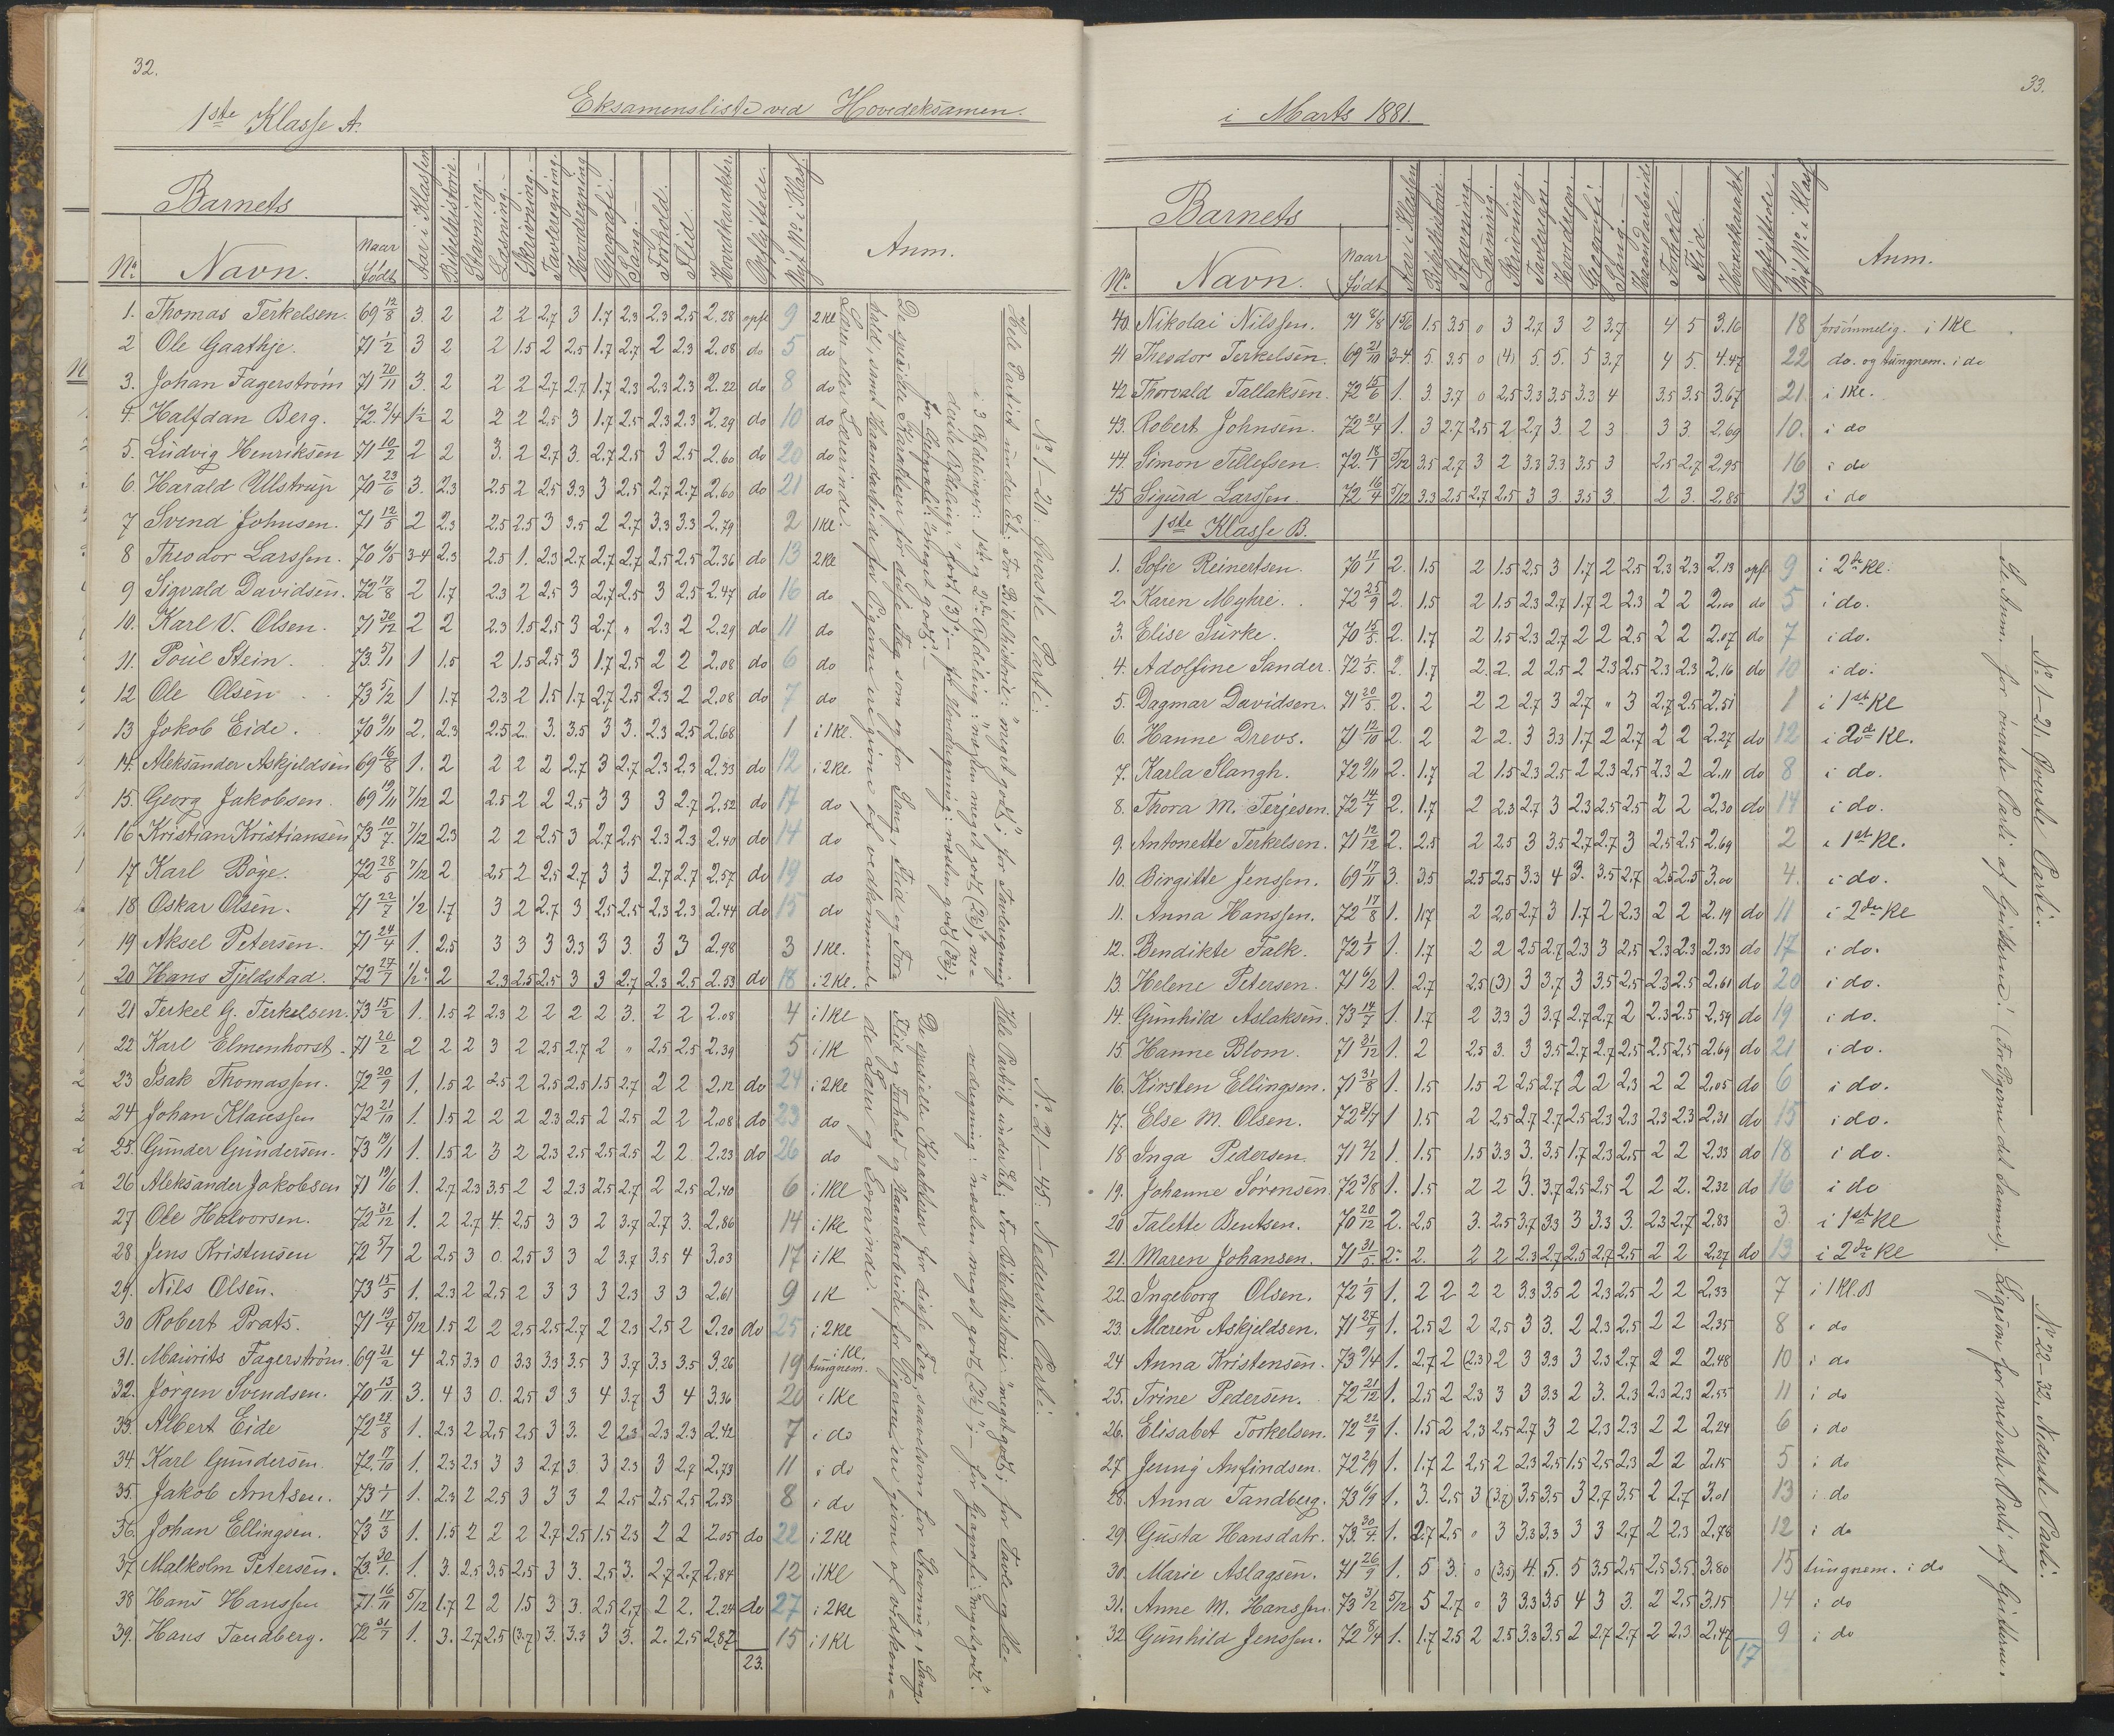 32.
1ste Klasse A.
Eksamensliste ved Hovedeksamen.
Barnets
No. Navn. Naar født Aar i Klassen Bibelhistorie. Stavning. Læsning. Skrivning. Tavleregning. Hovedregning Geografi. Sang. Forhold. Flid. Hovedkarakter. Opflyttede. Nyt No. i Klas. Anm.
1. Thomas Terkelsen. 69 12/8 3. 2 2 2 2.7 3 1.7 2.3 2.3 2.5 2.28 opfl 9 2 Kl
2 Ole Gaathje. 71 1/2 3 2 2 1.5 2 2.5 1.7 2.7 2 2.3 2.08 do 5 do
3. Johan Fagerstrøm 71 20/11 3. 2 2 2 2.7 2.7 1.7 2.3 2.3 2.3 2.22 do 8 do
4. Halfdan Berg. 72. 2/4 1½ 2 2 2 2.5 3 1.7 2.5 2.3 2.3 2.29 do 10 do
5. Ludvig Henriksen 71 10/2 2 2 3. 2 2.7 3. 2.7 2.5 3 2.5 2.60 do 20 do
6. Harald Ulstrup 70 23/6 3. 2.3 2.5 2 2.5 3.3 3 2.5 2.7 2.7 2.60 do 21 do
7 Svend Johnsen. 71 12/5 2 2.3 2.5 2.5 3 3.5 2 2.7 3.3 3.3 2.79 2 1 Kl
8 Theodor Larssen. 70 6/5 3-4 2.3 2.5 1. 2.3 2.7 2.7 2.7 2.5 2.5 2.36 do 13 2 Kl
9 Sigvald Davidsen. 72 17/8 2 1.7 2.3 2 2.5 3 2.7 2.5 3 2.5 2.47 do 16 do
10. Karl V. Olsen. 71 30/12 2 2 2.3 1.5 2.5 3 2.7 " 2.3 2 2.29 do 11 do
11. Poul Stein. 73. 5/1 1 1.5 2 1.5 2.5 3 1.7 2.5 2 2 2.08 do 6 do
12 Ole Olsen 73 5/2 1 1.7 2.3 2 1.5 1.7 2.7 2.5 2.3 2 2.08 do 7 do
13 Jakob Eide. 70 9/11 2. 2.3 2.5 2. 3. 3.5 3 3. 2.3 2.5 2.68 1 i 1 Kl.
14. Aleksander Askjeldsen 69 16/8 1. 2 2 2 2 2.7 3 2.7 2.3 2.3 2.33 do 12 i 2 Kl.
15. Georg Jakobsen. 69 19/11 7/12 2 2.5 2 2 2.5 3 3 3 2.7 2.52 do 17 do
16 Kristian Kristiansen 73 10/7. 7/12 2.3 2 2 2.5 3 2.7 2.5 2.3 2.3 2.40 do 14 do
17 Karl Bøge. 72 28/5 7/12 2 2.5 2 2.5 2.7 3 3 2.7 2.7 2.57 do 19 do
18 Oskar Olsen. 71 22/7 1/2 1.7 3 2 2.7 3 2.5 2.5 2.3 2.3 2.44 do 15 do
19 Aksel Petersen. 71 24/4 1. 2.5 3 3 3 3.3 3 3. 3 3 2.98 3 1 Kl.
20 Hans Fjeldstad. 72 27/7 1/2 2 2.3 2.5 2.5 3 3 2.7 2.3 2.5 2.53 do 18 i 2 Kl.
21 Terkel G. Terkelsen. 73 15/2 1. 1.5 2 2.3 2 2 2 2 3. 2 2 2.08 4 i 1 Kl
22 Karl Elmenhorst. 71 20/2 2 2 2 3 2 2.5 2.7 2 " 2.5 2.5 2.39 5 i 1 K
23 Isak Thomassen. 72 20/9 1. 1.5 2 2.5 2 2.5 2.5 1.5 2.7 2 2 2.12 do 24 i 2 Kl
24 Johan Klaussen 72 21/10 1. 1.5 2 2 2 2.3 2.5 2 2.5 2 2 2.08 do 23 do
25. Gunder Gundersen. 73 19/1 1. 1.5 2 3 2 2.3 2.5 2.5 2.5 2 2 2.23 do 26 do
26 Aleksander Jakobsen 71 19/6 1. 2.7 2.3 3.5 2 2 2.3 2.5 2.7 2 2.5 2.40 6 i 1 Kl
27 Ole Halvorsen. 72 31/12 1. 2 2.7 4. 2.5 3 3 2 3.7 2.7 3. 2.86 14 i 1 Kl
28 Jens Kristensen 72 5/7 2 2.5 3 0. 2.5 3 3 2 3.7 3.5 4 3.03 17 i 1 K
29. Nils Olsen. 73 15/5 1. 2.3 2 2.5 2 3 3 3 2.3 3 3 2.61 9 i K
30 Robert Prats. 71 19/4 5/12 1.5 2 2 2.5 2.5 2.7 2 2.3 2.5 2 2.20 do 25 i 2 Kl
31. Mauritz Fagerstrøm. 69 21/2 4 2.5 3.3 0 3.3 3.3 3.5 3 3.7 3.3 3.5 3.26 19 i Kl. tungnem.
32. Jørgen Svendsen. 70 13/11 3. 4 3 0. 2.5 3 3 4 3.7 3 4 3.36 20 i 1 Kl
33. Albert Eide 72 27/8 1. 2.3 2 2.5 2.5 3 3. 2 2.3 2.3 2.3 2.42 7 i do
34 Karl Gundersen 72. 17/10 1. 2.3 2.3 3 3 2.7 3 3 2.3 3 2.7 2.73 11 i do
35. Jakob Arntsen. 73 1/1 1. 2.3 2 2.5 3 3 3 2 2.5 2.5 2.5 2.53 8 i do
36. Johan Ellingsen. 73 17/3 1. 1.5 2 2 2 2.7 2.5 1.5 2.3 2 2 2.05 do 22 i 2 Kl
37. Malkolm Petersen. 73. 30/1. 1. 3. 2.5 3.5 2.5 3 3. 2.5 3. 2.7 2.7 2.84 12 i 1 Kl
38 Hans Hanssen 71. 16/11 5/12 1.7 2 2 1.5 3 3. 2.5 2.7 2 2. 2.24 do 27 i 2 Kl
39. Hans Tandberg. 72 31/7 1. 3. 2.7 2.5 (3.7) 3. 3.3 3 3. 2. 2.5 2.82 15 i 1 Kl
23.
No. 1–20: Øverste Parti:
Hele Partiet under Et: For Bibelhistorie: "meget godt"; for Tavleregning
i 3 Afdelinger: 1ste og 2den Afdeling: "næsten meget godt (2½)", ne-
derste Afdeling: "godt (3)"; – for Hovedregning: næsten godt (3½);
for Geografi: "meget godt". –
De specielle Karakterer for disse Fag som og for Sang, Flid og For-
hold samt Haandarbeide for Pigerne ere givne af vedkommende
Lærer eller Lærerinde.
No. 21–45: Nederste Parti:
Hele Partiet under Et: For Bibelhistorie: "meget godt"; for Tavle- og Ho-
vedregning: "næsten meget godt (2½)"; – for Geografi: "meget godt".
De specielle Karakterer for disse Fag saavelsom for Stavning, Sang,
Flid og Forhold og Haandarbeide for Pigerne ere givne af vedkommen-
de Lærer og Lærerinde.
33.
i Marts 1881.
Barnets
No. Navn. Naar født Aar i Klassen Bibelhistorie. Stavning. Læsning. Skrivning. Tavleregn. Hovedregn. Geografi. Sang. Haandarbeide Forhold. Flid. Hovedkarakt. Opflyttede. Nyt No. i Klas Anm.
40. Nikolai Nilssen. 71 8/8 1 5/6 1.5 3.5 0 3 2.7 3 2 3.7 4 5 3.16 18 forsømmelig. i 1 Kl
41 Theodor Terkelsen. 69 21/10 3-4 5. 3.5 0 (4) 5. 5. 5 3.7 4 5. 4.47 22 do. og tungnem. i do
42 Thorvald Tallaksen. 72 15/6 1. 3. 3.7 0 2.5 3.3 3.5 3.3 4 3.5 3.5 3.67 21 i 1 Kl.
43. Robert Johnsen. 72 21/4 1. 3 2.7 2.5 2 2.7 3. 2 3 3 3. 2.69 10. i do
44. Simon Tellefsen. 72. 18/1 5/12 3.5 2.7 3 2 3.3 3.3 3.5 3 2.5 2.7 2.95 16 i do
45 Sigurd Larssen. 72 16/4 5/12 3.3 2.5 2.7 2.5 3 3. 3.5 3 2 3. 2.85 13 i do
1ste Klasse B.
1. Sofie Reinertsen. 70 17/1 2. 1.5 2 1.5 2.5 3 1.7 2 2.5 2.3 2.3 2.13 opfl 9 i 2den Kl.
2. Karen Myhre. 72 25/9 2. 1.5 2 1.5 2.3 2.7 1.7 2 2.3 2 2 2.00 do 5 i do.
3. Elise Surke. 70 15/5. 2. 1.7 2 1.5 2.3 2.7 2 2 2.5 2 2 2.07 do 7 i do.
4. Adolfine Sander. 72 1/5. 2. 1.7 2. 2. 2 2.5 2 2.3 2.5 2.3 2.3 2.16 do 10 i do.
5. Dagmar Davidsen. 71 20/5. 2. 2 2 2 2.7 3 2.7 " 3 2.7 2.5 2.51 1 i 1st Kl
6. Hanne Drevs. 71 12/10 2. 2 2 2. 3 3.3 1.7 2 2.7 2 2 2.27 do 12 i 2de Kl.
7. Karla Slangh. 72 9/11 2. 1.7 2 1.5 2.3 2.5 2 2.3 2.5 2.3 2 2.11 do 8 i do.
8. Thora M. Terjesen. 72 14/7 2. 1.7 2 2.3 2.7 3 2.3 2.5 2.5 2 2 2.30 do 14 i do.
9. Antonette Terkelsen. 71 12/12 2. 2.5 2 2.5 3 3.5 2.7 2.7 3 2.5 2.5 2.69 2 i 1st Kl.
10. Birgitte Jenssen. 69 17/11 3. 3.5 2.5 2.5 3.3 4 3. 3.5 2.7 2.5 2.5 3.00 4. i do.
11. Anna Hanssen. 72 17/8 1. 1.7 2 2.5 2.7 3 1.7 2 2.3 2 2 2.19 do 11 i 2den Kl
12. Bendikte Falk. 72 1/1 1. 1.7 2 2 2.5 2.7 2.3 3 2.5 2.3 2.3 2.33 do 17 i do.
13. Helene Petersen. 71 6/2 1. 2.7 2.5 (3) 3 3.7 3 3.5 2.5 2.3 2.5 2.61 do 20 i do.
14. Gunhild Aslaksen. 73 14/7 1. 1.7 2 3.3 3 3.7 2.7 2.7 2 2.3 2.5 2.59 do 19 i do.
15 Hanne Blom. 71 31/12 1. 2 2.5 3. 3 3.5 2.7 2.7 2.5 2.5 2.5 2.69 do 21 i do.
16. Kirsten Ellingsen. 71 31/8 1. 1.5 1.5 2 2.5 2.7 2 2 2.3 2 2 2.05 do 6 i do.
17. Else M. Olsen. 72 8/7 1 1.5 2 2.5 2.7 2.7 2.5 2.3 2.3 2.3 2.3 2.31 do 15 i do.
18 Inga Pedersen. 71 2/2 1. 1.5 1.5 3.3 3. 3.5 1.7 2.3 2.5 2 2 2.33 do 18 i do.
19. Johanne Sørensen. 72 3/8 1. 1.5 2 2 3. 3.7 2.5 2.5 2 2 2. 2.32 do 16 i do
20 Talette Bentsen. 70 20/12 2. 2.5 3. 2.5 3.7 3.3 3 3.3 3. 2.3 2.7 2.83 3. i 1st Kl
21. Maren Johansen. 71 31/5. 2. 2. 2 2 2.3 2.7 2.5 2.7 2.5 2 2 2.27 do 13 i 2den Kl
22. Ingeborg Olsen. 72 1/9 1. 2 2 2 2 3.3 3.5 2 2.3 2.5 2 2 2.33 7 i 1 Kl. B
23. Maren Askjeldsen. 71 27/9 1. 2.5 2 2 2.5 3 3. 2 2.3 2.5 2 2 2.35 8 i do
24 Anna Kristensen. 73 9/4 1. 2.7 2 (2.3) 2 3 3.3 3 2.3 2.7 2 2 2.48 10 i do
25. Trine Pedersen. 72 21/12 1. 2.5 2 2.3 3 3 3.3 2 3. 2.3 2.3 2.3 2.53 11 i do
26. Elisabet Torkelsen. 72 22/9 1. 1.5 2 2.3 2.5 2.7 3 2 2.3 2.3 2 2 2.24 6 i do
27 Jenny Anfindsen. 72 2/9 1. 1.7 2 2.5 2 2.3 2.5 1.5 2.5 2.3 2 2 2.15 5 i do
28. Anna Tandberg. 73 6/9 1. 3. 2.5 3 (3.7) 3.5 3.5 3 2.7 3.5 2 2.7 3.01 13 i do
29. Gusta Hansdatr. 73. 30/4 1. 2.7 2.5 0 3 3.3 3.3 3 3 2.7 2 2.3 2.78 12 i do
30. Marie Aslagsen. 71 26/9 1. 5 3. 0 (3.5) 4. 5. 5 3.5 2.5 2.5 3.5 3.80 15 tungnem. i do
31. Anne M. Hanssen. 73 3/2 5/12 5 2.7 0 3 3.3 3.5 4 3 3. 2 2.5 3.15 14 i do
32 Gunhild Jenssen. 72 8/4 1. 1.7 2.5 2 2.5 3.3 3.5 2 2.7 2.7 2 2.3 2.47 9 i do
17
No. 1–21. Øverste Parti:
Se Anm. for øverste Parti af Gutterne! (For Pigerne det samme).
No. 22–32. Nederste Parti:
Ligesom for nederste Parti af Gutterne.